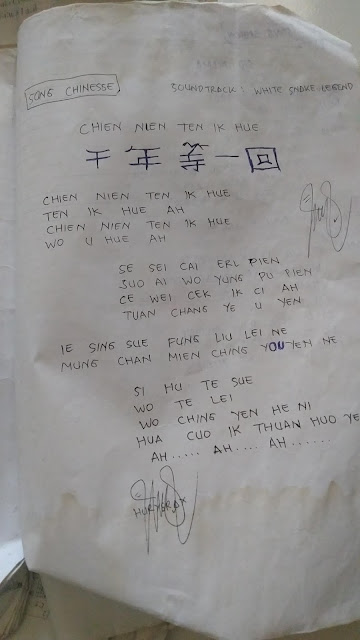 SONG CHINESSE
SOUNDTRACK : WHITE SNAKE LEGEND
CHIEN NIEN TEN IK HUE
千年等一回
CHIEN NIEN TEN IK HUE
TEN IK HUE AH
CHIEN NIEN TEN IK HUE
WO U HUE AH
SE SEI CAI ERL PIEN
SUO AI WO YUNG PU PIEN
CE WEI CEK IK CI AH
TUAN CHANG YE U YEN
IE SING SUE FUNG LIU LEI NE
MUNG CHAN MIEN CHING YOU YEN NE
SI HU TE SUE
WO TE LEI
WO CHING YEN HE NI
HUA CUO IK THUAN HUO YE
AH ..... AH .... AH ......